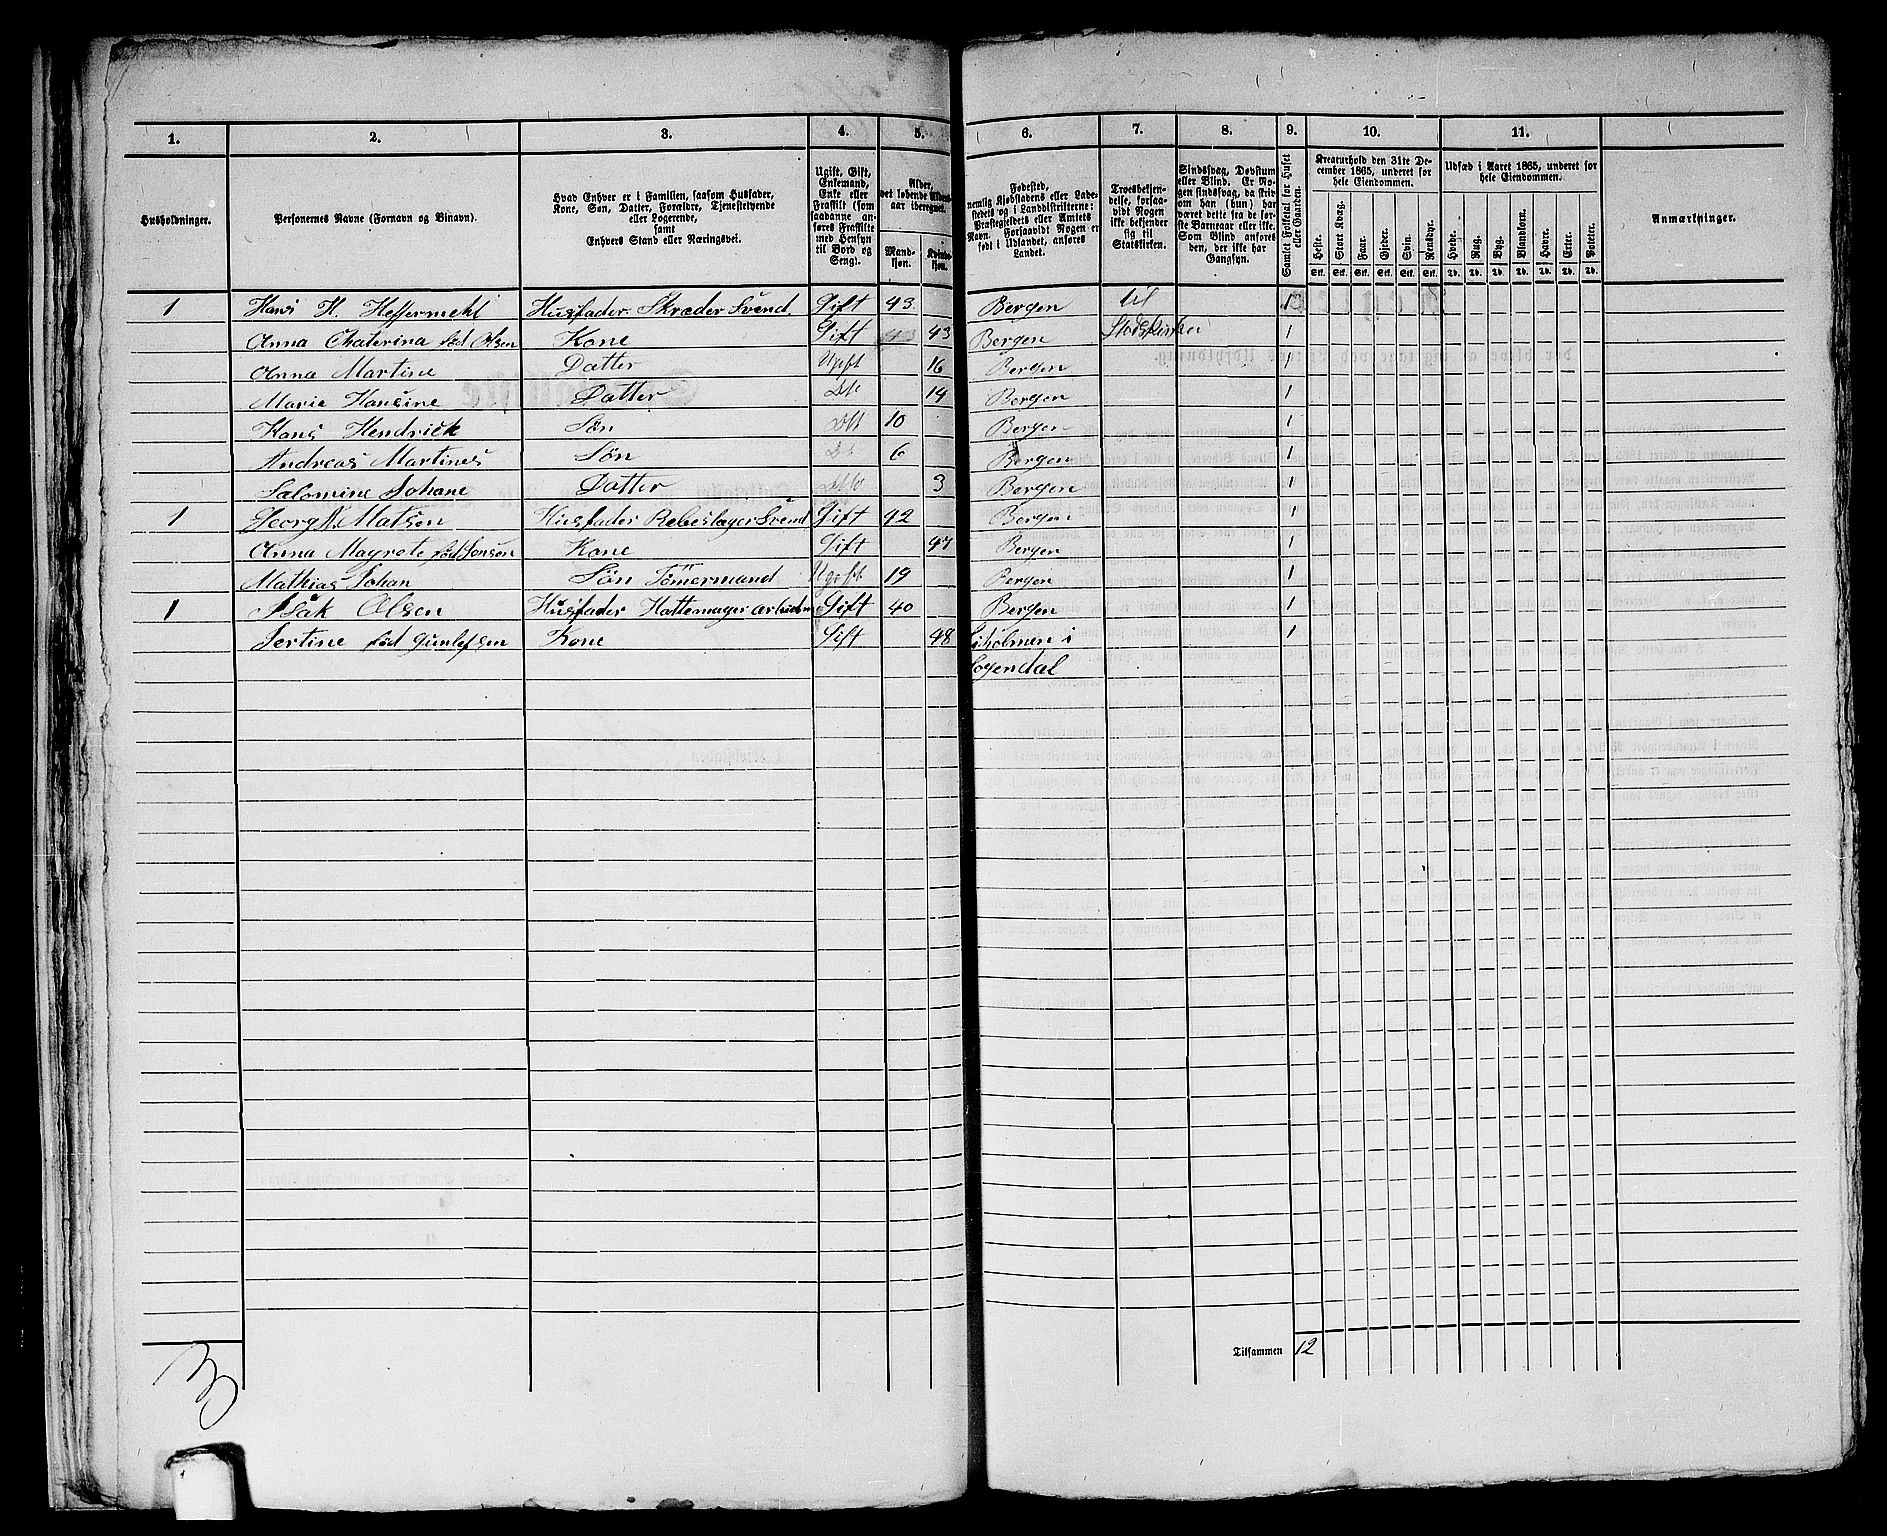 1. 2. 3. 4. 5. 6. 7. 8. 9. 10. 11.
Husholdninger.
Personernes Navne (Fornavn og Binavn).
Hvad Enhver er i Familien, saasom Husfader,
Kone, Søn, Datter, Forældre, Tjenestetyende
eller Logerende,
samt
Enhvers Stand eller Næringsvei.
Ugift, Gift,
Enkemand,
Enke eller
Fraskilt (som
saadanne an-
føres Fraskilte
med Hensyn
til Bord og
Seng).
Alder,
det løbende Alders-
aar iberegnet.
Mand-
kjøn.
Kvinde-
kjøn.
Fødested,
nemlig Kjøbstadens eller Lade-
stedets og i Landdistrikterne:
Præstegjeldets eller Amtets
Navn. Forsaavidt Nogen er
født i Udlandet, anføres
Landet.
Troesbekjen-
delse, forsaa-
vidt Nogen
ikke bekjender
sig til
Statskirken.
Sindssvag, Døvstum
eller Blind. Er No-
gen sindssvag, da skrives
om han (hun) har
været dette fra de før-
ste Barneaar eller ikke.
Som Blind anføres
den, der ikke har
Gangsyn.
Samlet Folketal for Huset
eller Gaarden.
Kreaturhold den 31te De-
cember 1865, underet for
hele Eiendommen.
Heste. Stort Kvæg. Faar. Gjeder. Svin. Rensdyr.
Stk. Stk. Stk. Stk. Stk. Stk.
Udsæd i Aaret 1865, underet for
hele Eiendommen.
Hvede. Rug. Byg. Blandkorn. Havre. Erter. Poteter.
Td. Td. Td. Td. Td. Td. Td.
Anmærkninger.
1 Hans H. Heffermehl Husfader Skræder Svend Gift 43 Bergen til 1
Anna Chaterina fød Olsen Kone Gift 43 43 Bergen Statskirken 1
Anna Martine Datter Ugift 16 Bergen 1
Marie Hansine Datter Dto 14 Bergen 1
Hans Hendrick Søn 10 Bergen 1
Andreas Martines Søn 6 Bergen 1
Salomine Johane Datter Dto 3 Bergen 1
1 Georg Matsen Husfader Rebeslager Svend Gift 42 Bergen 1
Anna Magrete fød Jonsen Kone Gift 47 Bergen 1
Mathias Johan Søn Tømermand Ugift 19 Bergen 1
1 Isak Olsen Husfader Hattemager arbeidm Gift 40 Bergen 1
Sertine fød Gunlefsen Kone Gift 48 holmen i 1
Sogendal
Tilsammen 12